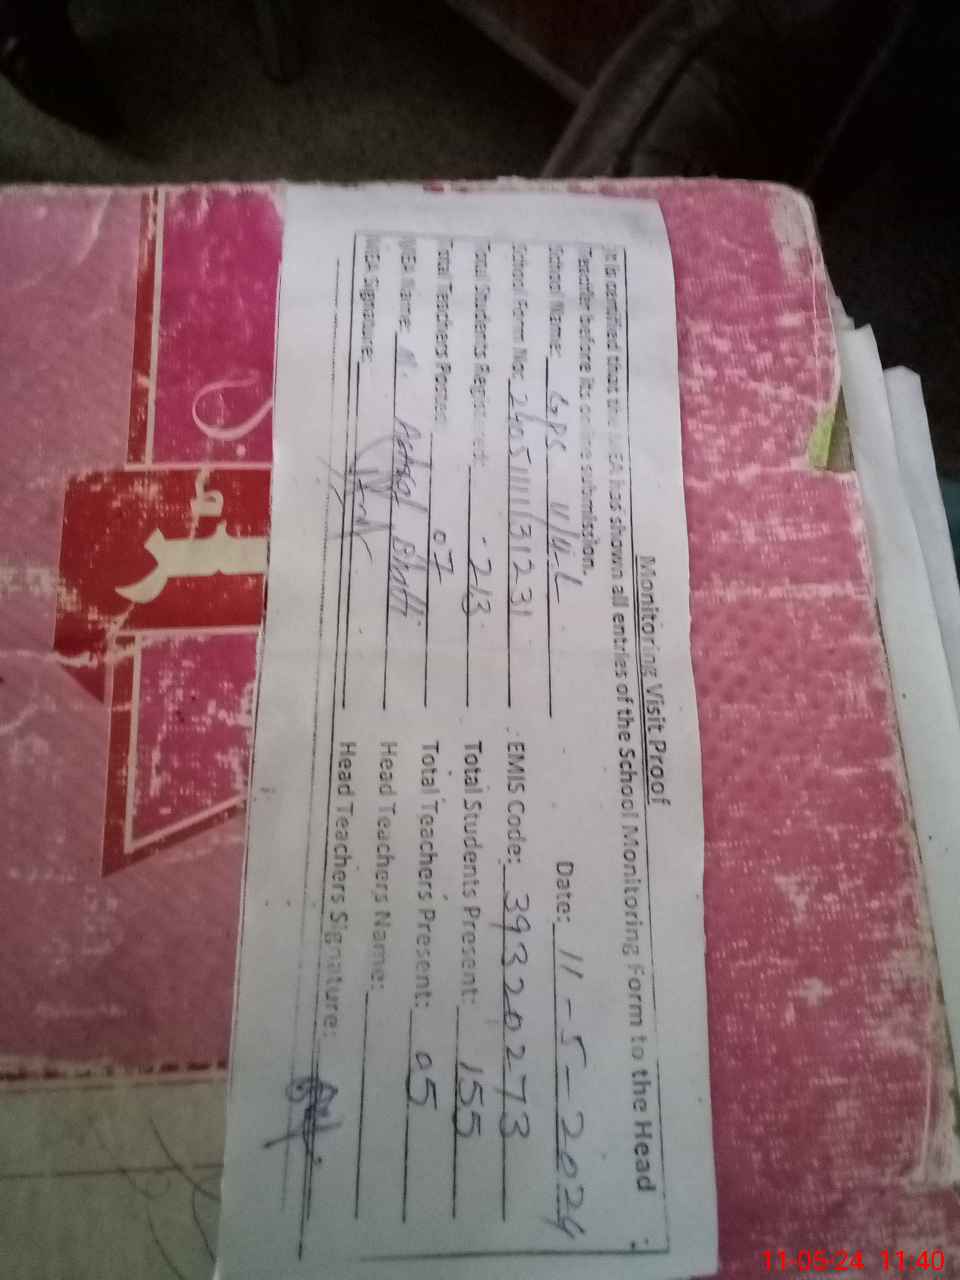 Monitoring Visit Proof
It is certified that the MEA has shown all entries of the School Monitoring Form to the Head
Teacher before its online submission.
School Name: GPS Date: 11-5-2024
School Form No: EMIS Code: 39320273
Total Students Registered: 213 Total Students Present: 155
Total Teachers Posted: 07 Total Teachers Present: 05
MEA Name: M. Bhatti Head Teachers Name:
MEA Signature: Head Teachers Signature:
11-05-24 11:40